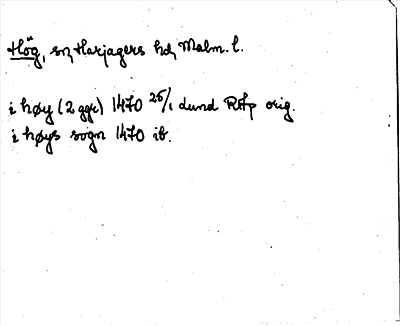 Hög, sn, Harjagers hd, Malm. l.
i høy (2 ggr) 1470 25/1 dund RAp orig.
i høys sogn 1470 ib.